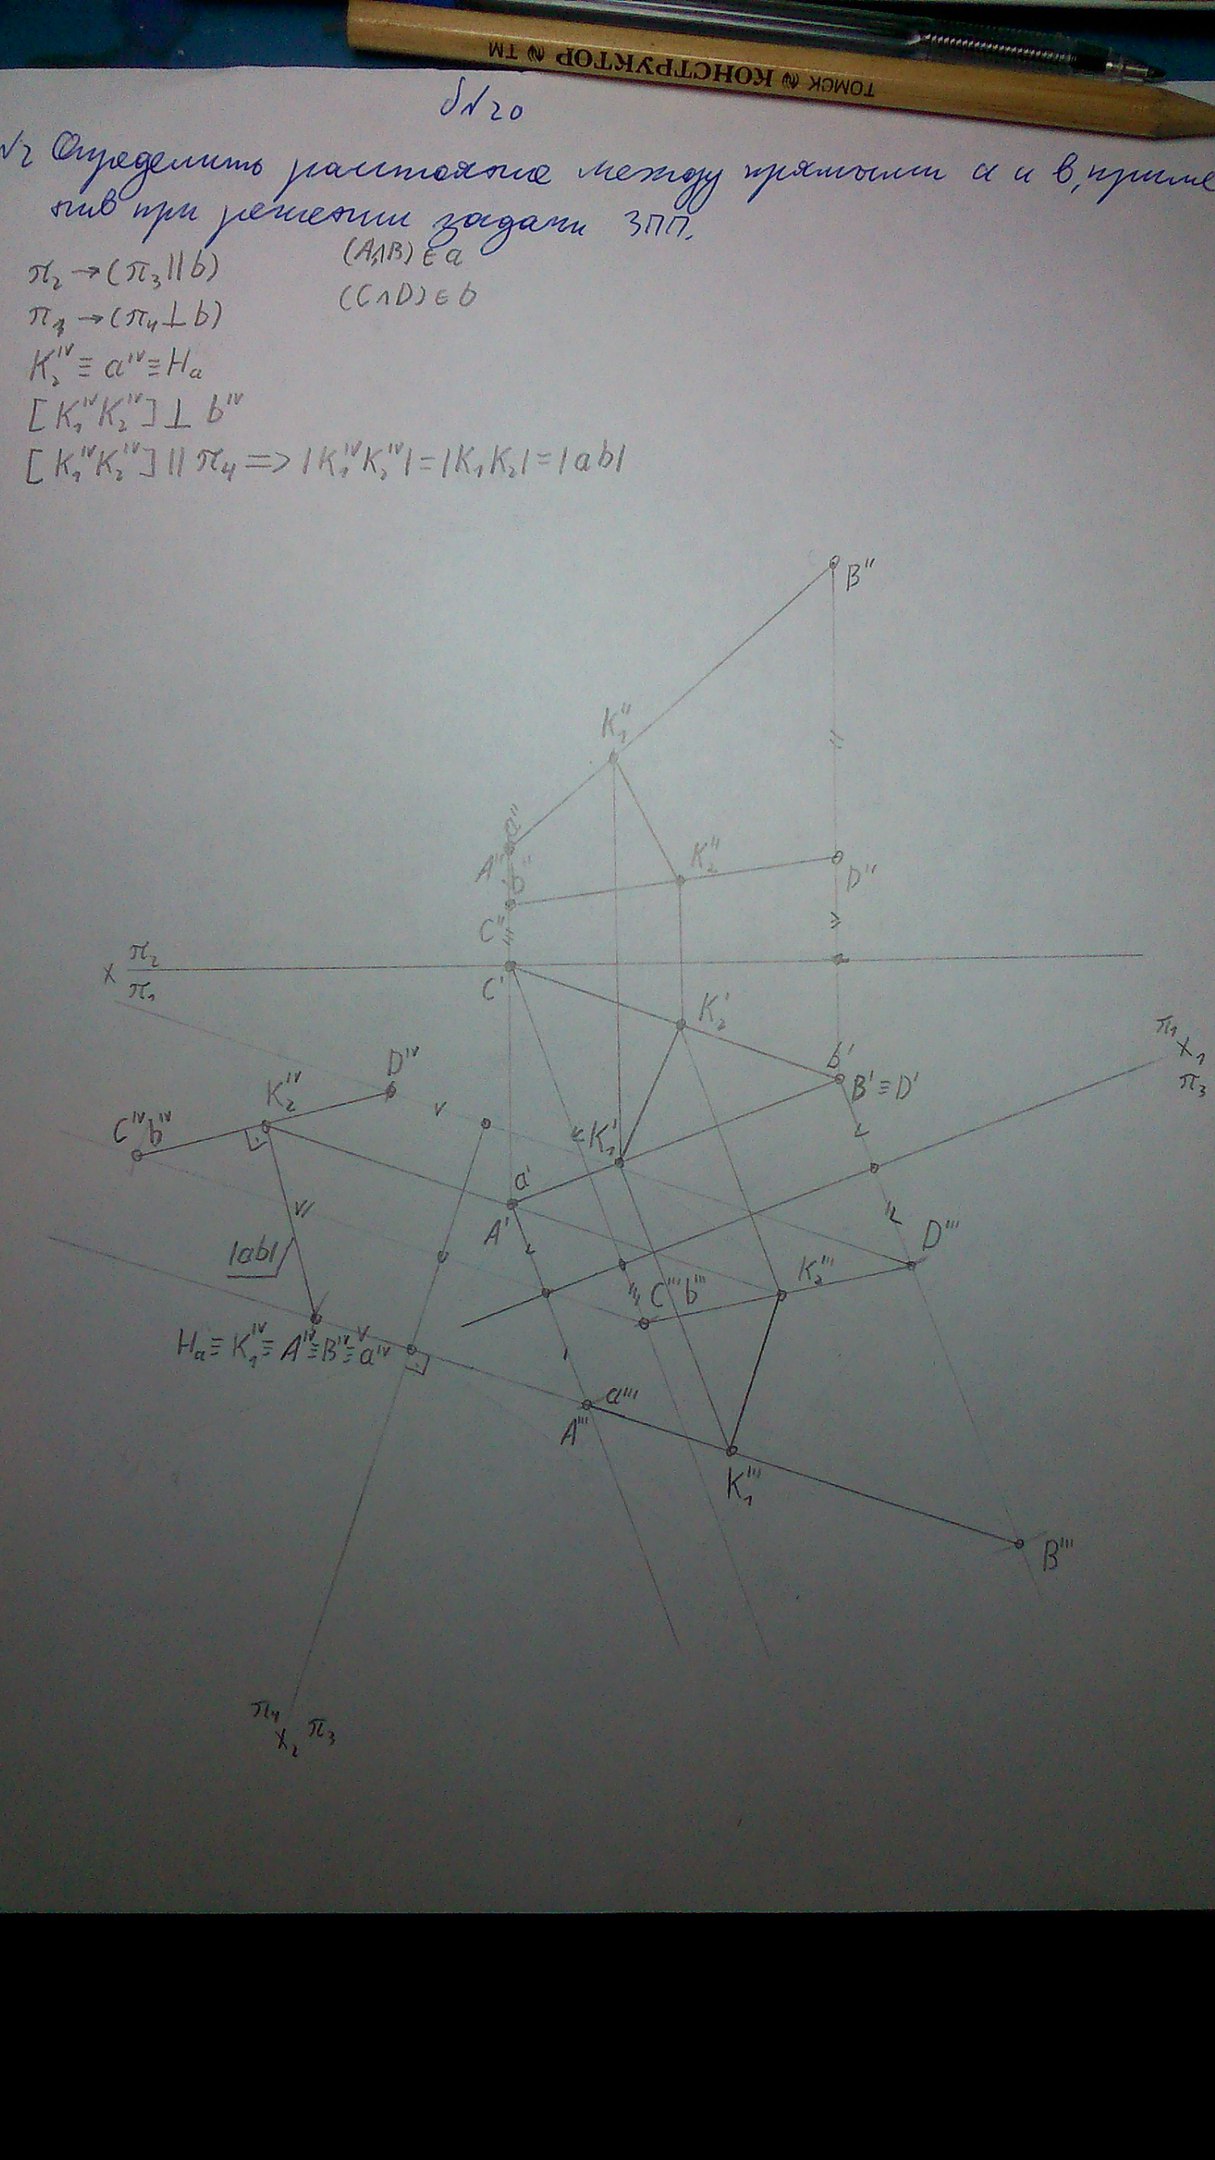 ТОМСК КОНСТРУКТОР ТМ
б№20
№2 Определить расстояние между прямыми а и в, приме
нив при решении задачи ЗПП.
π₂ → (π₃ || b)
(A∧B) ∈ a
π₃ → (π₄ ⊥ b)
(C∧D) ∈ b
K₂ᴵⱽ ≡ aᴵⱽ ≡ Hₐ
[K₁ᴵⱽ K₂ᴵⱽ] ⊥ bᴵⱽ
[K₁ᴵⱽ K₂ᴵⱽ] || π₄ => |K₁ᴵⱽ K₂ᴵⱽ| = |K₁K₂| = |ab|
B''
K₁''
a''
A''
b''
K₂''
D''
C''
x π₂
π₁
C'
K₂'
π₁
x₁
π₃
b'
B' ≡ D'
Dᴵⱽ
K₂ᴵⱽ
Cᴵⱽ bᴵⱽ
K₁'
a'
A'
D'''
|ab|
K₂'''
C''' b'''
Hₐ ≡ K₁ᴵⱽ ≡ Aᴵⱽ ≡ Bᴵⱽ ≡ aᴵⱽ
a'''
A'''
K₁'''
B'''
π₄
x₂
π₃